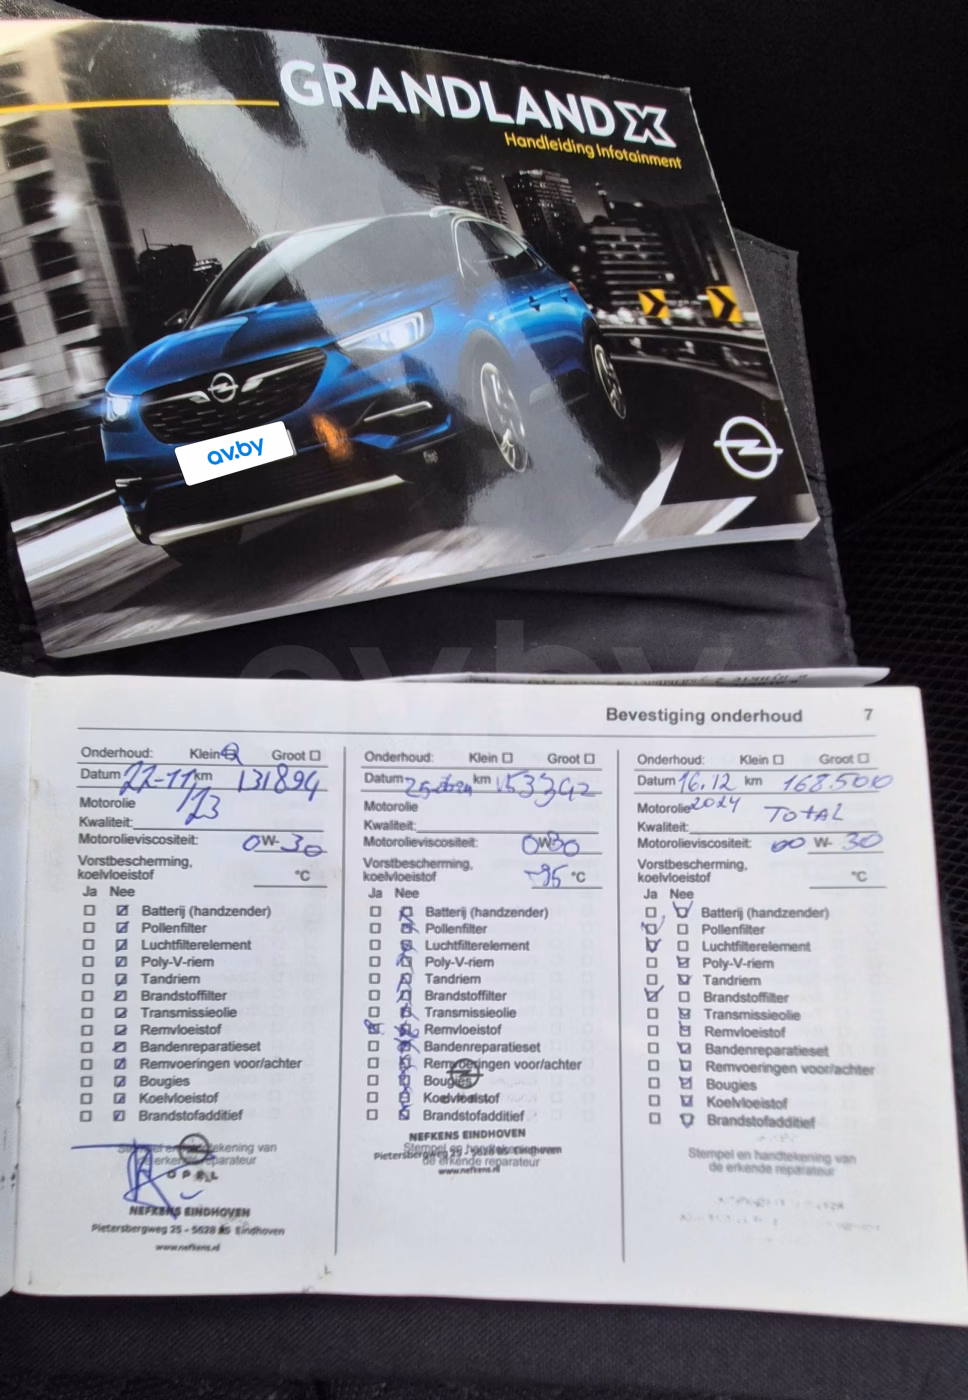 GRANDLAND X
Handleiding Infotainment
av.by
Bevestiging onderhoud 7
Onderhoud: Klein Groot
Datum 22-11/23 km 131894
Motorolie
Kwaliteit:
Motorolieviscositeit: 0W-30
Vorstbescherming,
koelvloeistof °C
Ja Nee
Batterij (handzender)
Pollenfilter
Luchtfilterelement
Poly-V-riem
Tandriem
Brandstoffilter
Transmissieolie
Remvloeistof
Bandenreparatieset
Remvoeringen voor/achter
Bougies
Koelvloeistof
Brandstofadditief
Stempel en handtekening van
de erkende reparateur
OPEL
NEFKENS EINDHOVEN
Pietersbergweg 25 - 5628 BS Eindhoven
www.nefkens.nl
Onderhoud: Klein Groot
Datum km 153342
Motorolie
Kwaliteit:
Motorolieviscositeit: 0W30
Vorstbescherming,
koelvloeistof -35 °C
Ja Nee
Batterij (handzender)
Pollenfilter
Luchtfilterelement
Poly-V-riem
Tandriem
Brandstoffilter
Transmissieolie
Remvloeistof
Bandenreparatieset
Remvoeringen voor/achter
Bougies
Koelvloeistof
Brandstofadditief
NEFKENS EINDHOVEN
Stempel en handtekening van
Pietersbergweg 25 - 5628 BS Eindhoven
de erkende reparateur
www.nefkens.nl
Onderhoud: Klein Groot
Datum 16.12 km 168.500
Motorolie 2024 TOTAL
Kwaliteit:
Motorolieviscositeit: 00 W- 30
Vorstbescherming,
koelvloeistof °C
Ja Nee
Batterij (handzender)
Pollenfilter
Luchtfilterelement
Poly-V-riem
Tandriem
Brandstoffilter
Transmissieolie
Remvloeistof
Bandenreparatieset
Remvoeringen voor/achter
Bougies
Koelvloeistof
Brandstofadditief
Stempel en handtekening van
de erkende reparateur